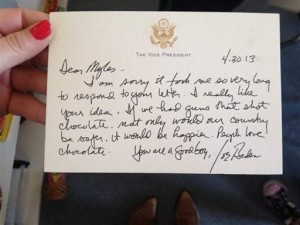 THE VICE PRESIDENT
4/30/13
Dear Myles -
I am sorry it took me so very long
to respond to your letter. I really like
your idea. If we had guns that shot
chocolate, not only would our country
be safer, it would be happier. People love
chocolate.
You are a good boy, Joe Biden